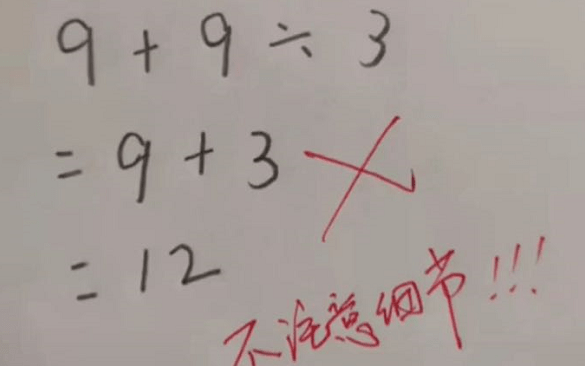 9 + 9 ÷ 3
= 9 + 3
= 12
不注意细节!!!